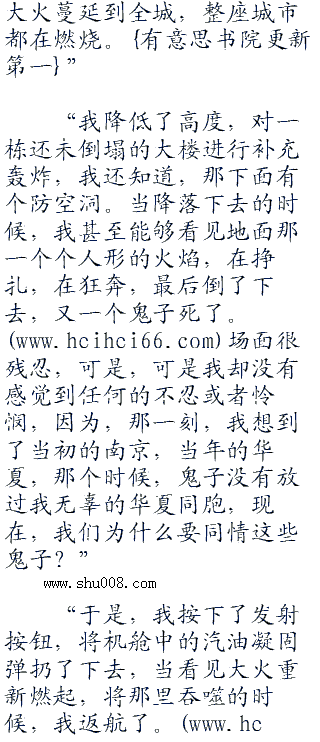 大火蔓延到全城，整座城市
都在燃烧。{有意思书院更新
第一}”
“我降低了高度，对一
栋还未倒塌的大楼进行补充
轰炸，我还知道，那下面有
个防空洞。当降落下去的时
候，我甚至能够看见地面那
一个个人形的火焰，在挣
扎，在狂奔，最后倒了下
去，又一个鬼子死了。
(www.hcihci66.com)场面很
残忍，可是，可是我却没有
感觉到任何的不忍或者怜
悯，因为，那一刻，我想到
了当初的南京，当年的华
夏，那个时候，鬼子没有放
过我无辜的华夏同胞，现
在，我们为什么要同情这些
鬼子？”
www.shu008.com
“于是，我按下了发射
按钮，将机舱中的汽油凝固
弹扔了下去，当看见大火重
新燃起，将那里吞噬的时
候，我返航了。(www.hc